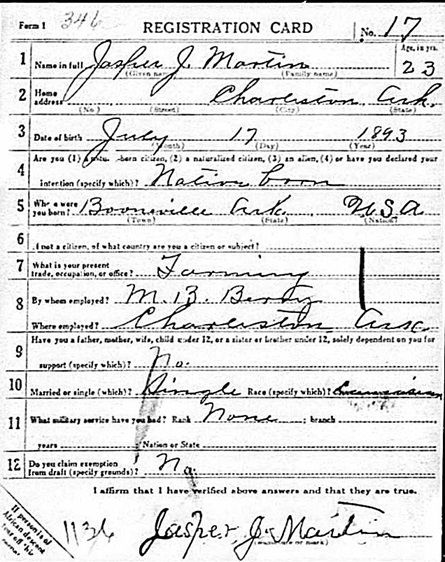 Form 1 346 REGISTRATION CARD No. 17
1 Name in full Jasper J. Martin Age, in yrs. 23
(Given name) (Family name)
2 Home address Charleston Ark.
(No.) (Street) (City) (State)
3 Date of birth July 17 1893
(Month) (Day) (Year)
Are you (1) a natural-born citizen, (2) a naturalized citizen, (3) an alien, (4) or have you declared your
4 intention (specify which)? Native born
5 Where were you born? Booneville Ark. U.S.A
(Town) (State) (Nation)
6 If not a citizen, of what country are you a citizen or subject?
7 What is your present trade, occupation, or office? Farming
8 By whom employed? M. B.
Where employed? Charleston Ark
Have you a father, mother, wife, child under 12, or a sister or brother under 12, solely dependent on you for
9 support (specify which)? No.
10 Married or single (which)? Single Race (specify which)? Caucasian
11 What military service have you had? Rank None ; branch
years Nation or State
12 Do you claim exemption from draft (specify grounds)? No.
I affirm that I have verified above answers and that they are true.
1136 Jasper J. Martin
(Signature or mark)
If person is of
African descent
tear off this
corner